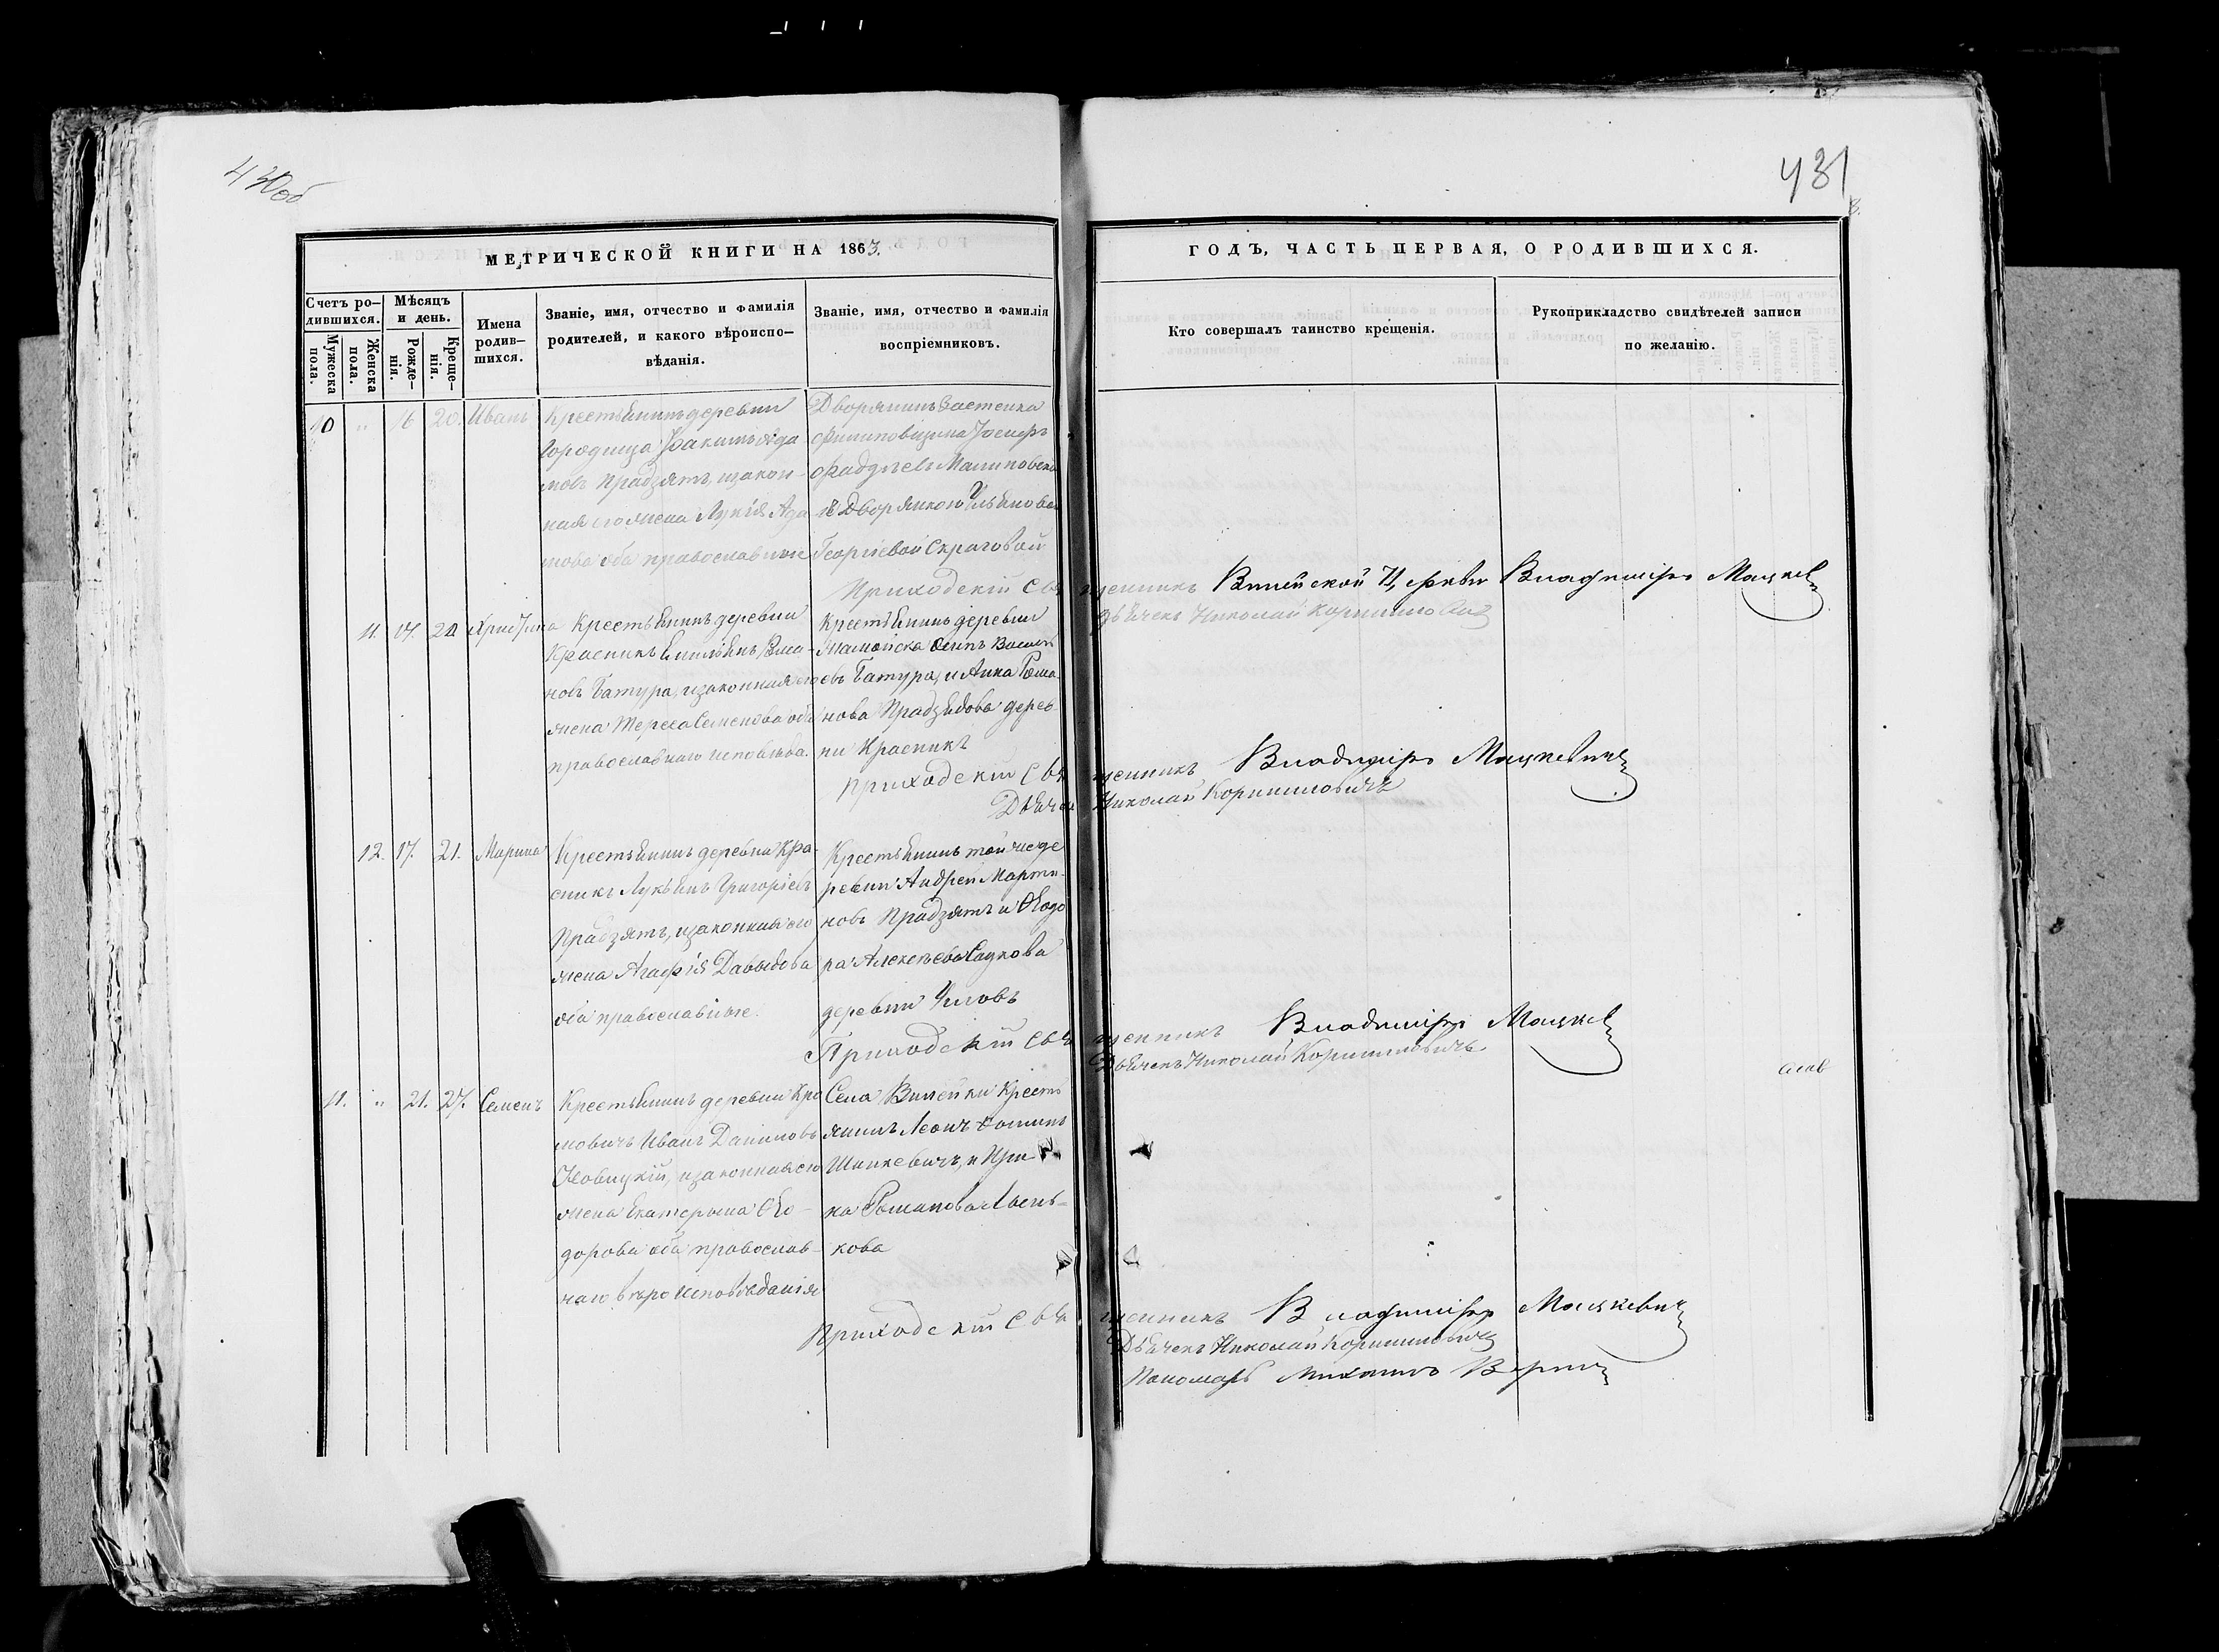 430об
431
МЕТРИЧЕСКОЙ КНИГИ НА 1863.
ГОДЪ, ЧАСТЬ ПЕРВАЯ, О РОДИВШИХСЯ.
Счетъ ро-
дившихся.
Мужеска
пола.
Женска
пола.
Мѣсяцъ
и день.
Рожде-
нія.
Креще-
нія.
Имена
родив-
шихся.
Званіе, имя, отчество и фамилія
родителей, и какого вѣроиспо-
вѣданія.
Званіе, имя, отчество и фамилія
воспріемниковъ.
Кто совершалъ таинство крещенія.
Рукоприкладство свидѣтелей записи
по желанію.
10 " 16 20. Иванъ
Крестьянинъ деревни
Городища Іоакимъ Ада
мовъ Прадзятъ, изакон-
ная его жена Лукія Ада
мова оба православные
Дворянинъ Застенка
Филиповщина Іосифъ
Фадѣевъ Малиновск
Дворянкою
Георгіевой
Приходскій Свя
щенникъ Вилейской Церкви Владиміръ Мацкев
Дьячекъ Николай
11. 17. 20 Христина
Крестьянинъ деревни
Красникъ Емильянъ Рома-
новъ Батура, изаконная его
жена Тереса Семенова оба
православнаго исповѣда.
Крестьянинъ деревни
Осипъ Васильевъ
евъ Батура, и Анна Рома-
нова Прадзядова дерев-
ни Красникъ
Приходскій Свя
щенникъ Владиміръ Мацкевичъ
Дьячекъ Николай Корниловичъ
12. 17. 21. Марина
Крестьянинъ деревни Кра-
сникъ Лукьянъ Григоріевъ
Прадзятъ, изаконная его
жена Агафія Давыдова
оба православные.
Крестьянинъ той же де
ревни Андрей Марти-
новъ Прадзятъ и Ѳеодо
ра Алексѣева Сацкова
деревни
Приходскій Свя
щенникъ Владиміръ Мацкев
Дьячекъ Николай Корниловичъ
11. " 21. 27. Семенъ
Крестьянинъ деревни Кро
мовичъ Иванъ Даниловъ
изаконная его
жена Екатерина Ѳео-
дорова оба православ-
наго вѣроисповѣданія
Села Вилейки Кресть
янинъ Леонъ
Шинкевичъ, и Ири
на Романова Авень-
кова
Приходскій Свя
щенникъ Владиміръ Мацкевичъ
Дьячекъ Николай Корниловичъ
Пономарь Михаилъ